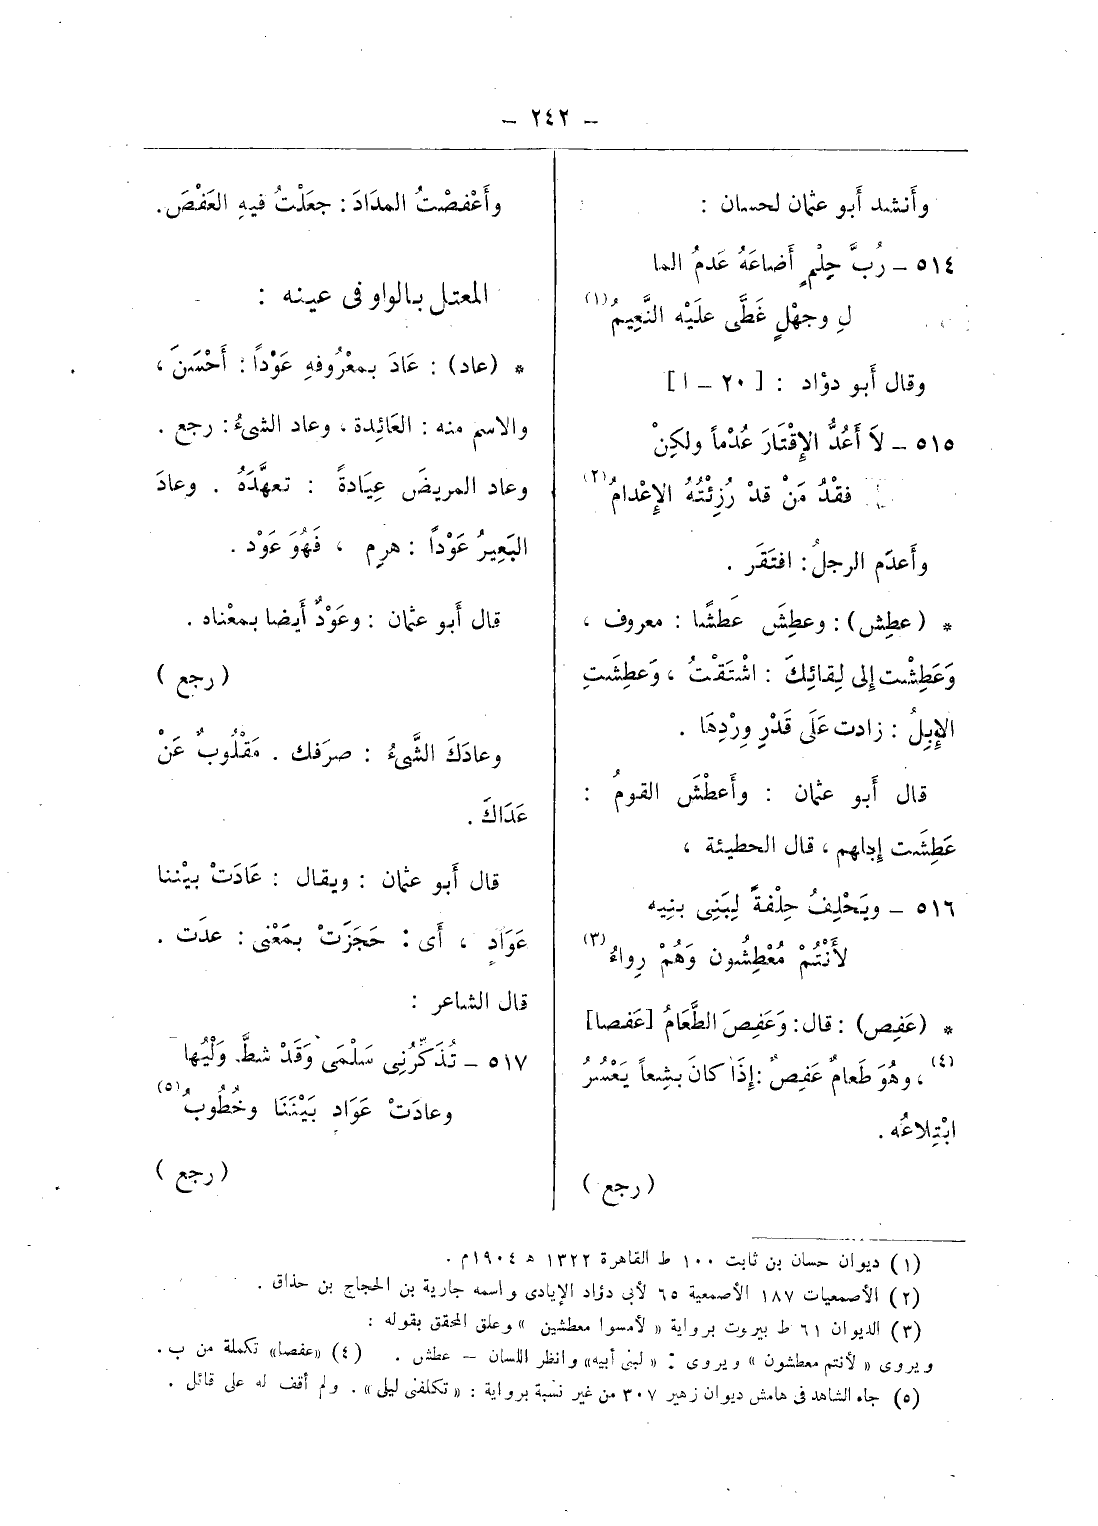 – ٢٤٢ –
وأَنشد أَبو عثمان لحسان :
٥١٤ – رُبَّ حِلْمٍ أَضاعَهُ عَدمُ الما
لِ وجهْلٍ غَطَّى علَيْه النَّعِيمُ(١)
وقال أَبو دؤاد : [ ٢٠ – ا ]
٥١٥ – لاَ أَعُدُّ الإِقْتَارَ عُدْماً ولكِنْ
فقْدُ مَنْ قدْ رُزِئْتُهُ الإِعْدامُ(٢)
وأَعدَم الرجلُ : افتَقَر .
* ( عطِش ) : وعطِشَ عَطشًا : معروف ،
وَعَطِشْت إلى لِقائِكَ : اشْتَقْتُ ، وَعطِشَتِ
الإِبِلُ : زادت عَلَى قَدْرِ وِرْدِهَا .
قال أَبو عثمان : وأَعطْشَ القومُ :
عَطِشَت إِبلهم ، قال الحطيئة ،
٥١٦ – ويَحْلِفُ حِلْفةً لِبَنِى بنِيه
لأَنْتُمْ مُعْطِشُون وَهُمْ رِواءُ(٣)
* (عَفِص) : قال : وَعَفِصَ الطَّعَامُ [عَفصا]
(٤) ، وهُوَ طَعامٌ عَفِصٌ : إِذَا كانَ بشِعاً يَعْسُرُ
ابْتِلاعُه .
( رجع )
وأَعْفصْتُ المدَادَ : جعَلْتُ فيهِ العَفْصَ .
المعتل بالواو فى عينه :
* (عاد) : عَادَ بمعْرُوفهِ عَوْداً : أَحْسَنَ ،
والاسم منه : العَائِدة ، وعاد الشىءُ : رجع .
وعاد المريضَ عِيَادةً : تعهَّدَهُ . وعادَ
البَعِيرُ عَوْداً : هرِم ، فَهُوَ عَوْد .
قال أَبو عثمان : وعَوْدٌ أَيضا بمعْناه .
( رجع )
وعادَكَ الشَّىءُ : صرَفك . مَقْلُوبٌ عَنْ
عَدَاكَ .
قال أَبو عثمان : ويقال : عَادَتْ بيْننا
عَوَادٍ ، أَى : حَجَزَتْ بمَعْنى : عدَت .
قال الشاعر :
٥١٧ – تُذَكِّرُنِى سَلْمَى وَقَدْ شطَّ وَلْيُها
وعادَتْ عَوَادٍ بَيْنَنَا وخُطُوبُ(٥)
( رجع )
(١) ديوان حسان بن ثابت ١٠٠ ط القاهرة ١٣٢٢ ه ١٩٠٤م .
(٢) الأصمعيات ١٨٧ الأصمعية ٦٥ لأبى دؤاد الإيادى واسمه جارية بن الحجاج بن حذاق .
(٣) الديوان ٦١ ط بيروت برواية « لأمسوا معطشين » وعلق المحقق بقوله :
ويروى « لأنتم معطشون » ويروى : « لبنى أبيه » وانظر اللسان – عطش . (٤) «عفصا» تكملة من ب .
(٥) جاء الشاهد فى هامش ديوان زهير ٣٠٧ من غير نسبة برواية : « تكلفنى ليلى » . ولم أقف له على قائل .